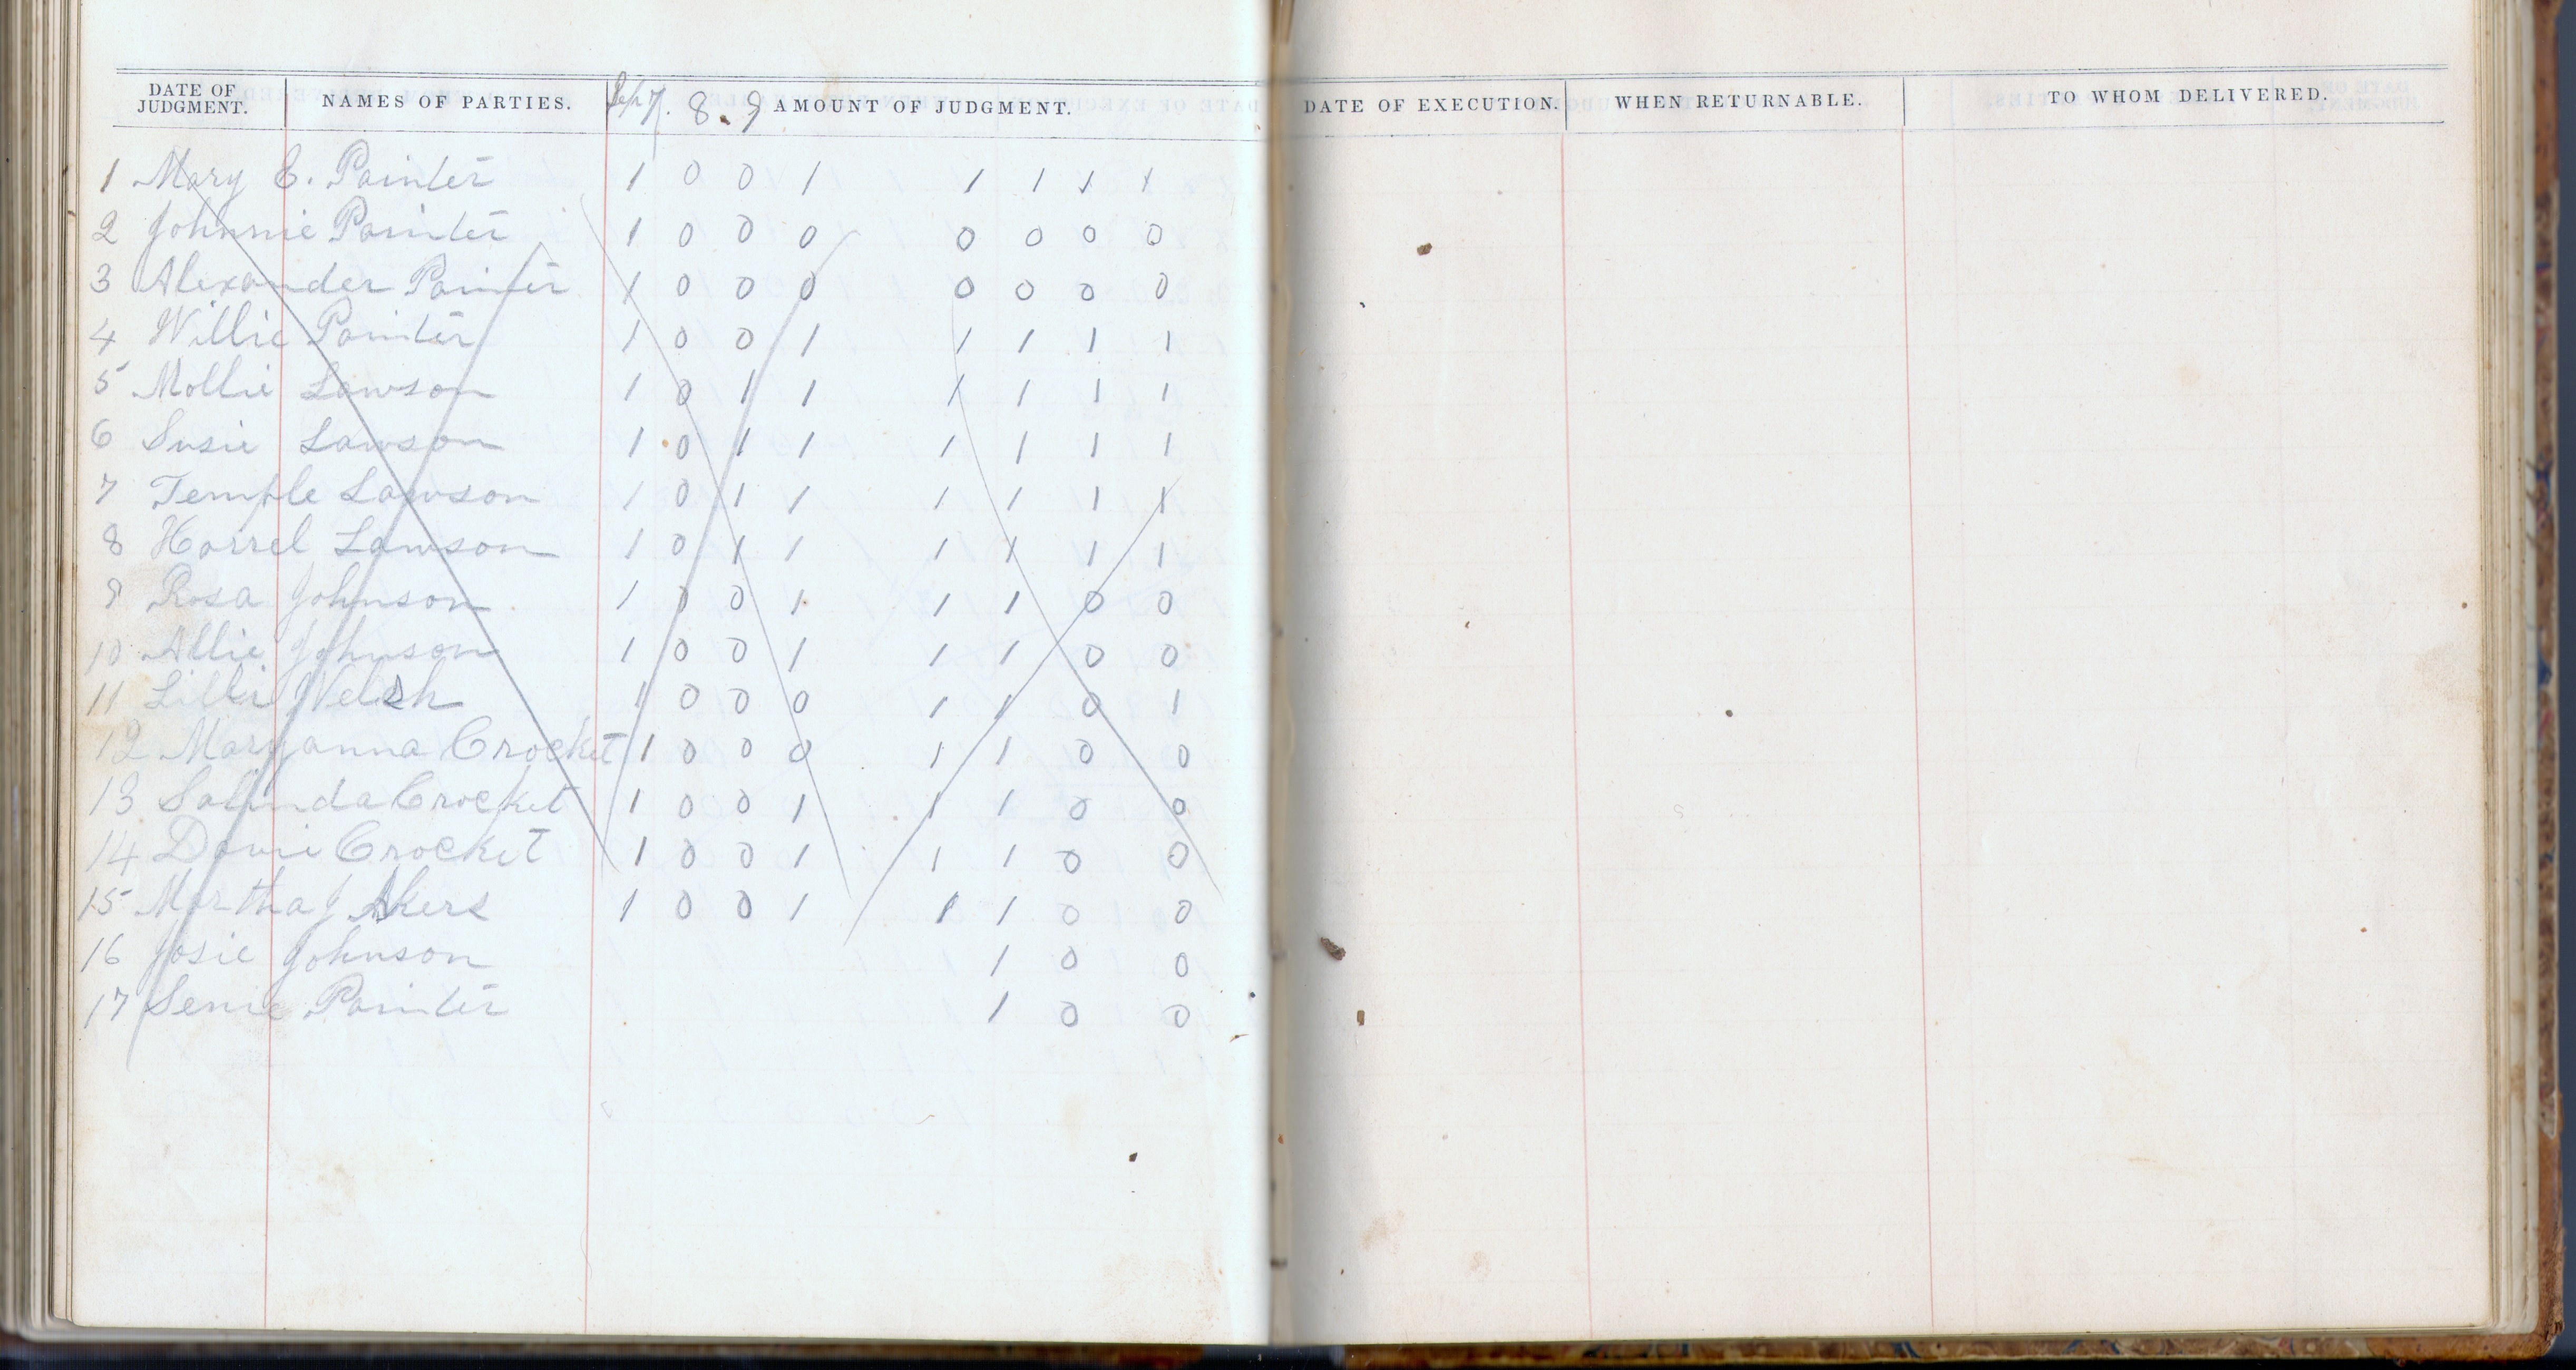 DATE OF JUDGMENT. NAMES OF PARTIES. Sep 7. 8. 9 AMOUNT OF JUDGMENT. DATE OF EXECUTION. WHEN RETURNABLE. TO WHOM DELIVERED.
1 Mary E. Painter 1 0 0 1 1 1 1 1
2 Johnnie Painter 1 0 0 0 0 0 0 0
3 Alexander Painter 1 0 0 0 0 0 0 0
4 Willie Painter 1 0 0 1 1 1 1 1
5 Mollie Lawson 1 0 1 1 1 1 1 1
6 Susie Lawson 1 0 1 1 1 1 1 1
7 Temple Lawson 1 0 1 1 1 1 1 1
8 Harrel Lawson 1 0 1 1 1 1 1 1
9 Rosa Johnson 1 0 0 1 1 1 0 0
10 Allie Johnson 1 0 0 1 1 1 0 0
11 Lillie Welsh 1 0 0 0 1 1 0 1
12 Maryanna Crocket 1 0 0 0 1 1 0 0
13 Salinda Crocket 1 0 0 1 1 1 0 0
14 Crocket 1 0 0 1 1 1 0 0
15 Martha J Akers 1 0 0 1 1 1 0 0
16 Josie Johnson 1 0 0
17 Senie Painter 1 0 0